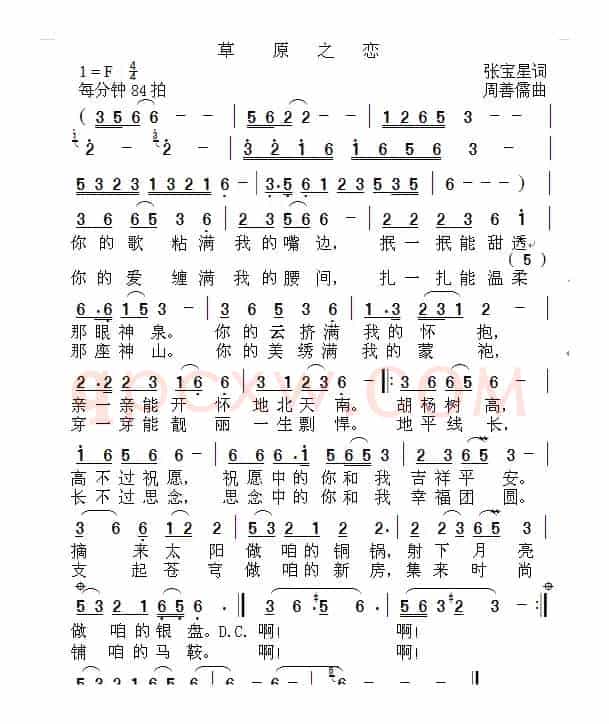 草 原 之 恋
1=F 4/4 张宝星词
每分钟84拍 周善儒曲
( 3 5 6 6 - | 5 6 2 2 - | 1 6 1 6 5 3 -
2 - 2 - | 3 2 1 6 1 6 5 4 3 -
5 3 2 3 1 3 2 1 6 - | 3.5 6 1 2 3 5 3 5 | 6 - - - )
3 6 6 5 6 | 3 5 6 2 2 - | 2 2 2 3 6 1
你的歌 粘满 我的嘴边, 抿一抿能甜透
(5)
你的爱 缠满 我的腰间, 扎一扎能温柔
6 .6 1 5 3 - | 3 6 5 6 5 3 | 1 .3 2 3 1 2 -
那眼神泉。 你的云挤满 我的怀 抱,
那座神山。 你的美绣满 我的蒙 袍,
2 .2 2 3 1 6 6 | 5 3 1 2 2 - 6 1 6 5 6
亲一亲能开 怀 地北天南。 胡杨树高,
qpcxw.COM
穿一穿能靓 丽 一生剽悍。 地平线长,
1 6 5 6 6 | 6 6 . 1 5 6 5 3 | 2 2 3 6 5
高不过祝愿, 祝愿中的你和我 吉祥平 安。
长不过思念, 思念中的你和我 幸福团 圆。
3 6 6 1 2 2 | 5 3 2 1 2 2 | 2 2 3 6 5
摘 来太阳 做咱的铜锅,射下月亮
支 起苍穹 做咱的新房,集来时尚
5 3 2 1 6 5 | 3 6. 6 5 6 - | 5. 3 2 3 -
做 咱的银 盘。D.C. 啊! 啊!
铺 咱的马 鞍。 啊! 啊!